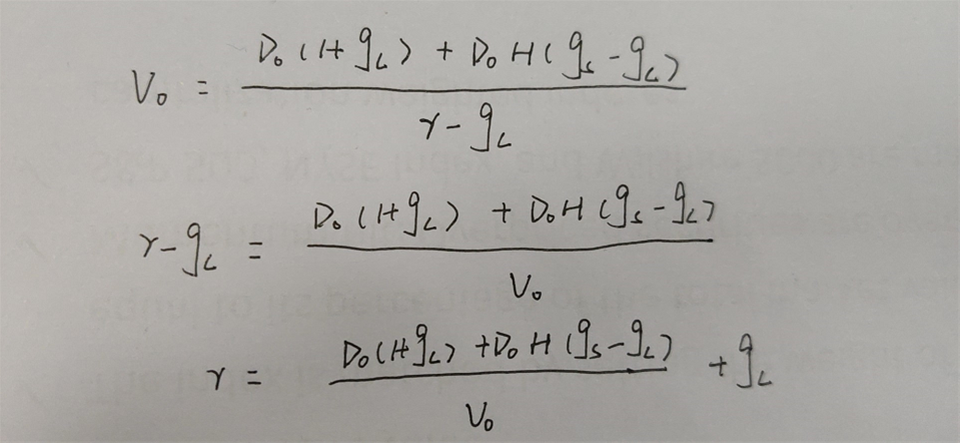 V₀ = (D₀(1+g_L) + D₀H(g_s - g_L)) / (r - g_L)
r - g_L = (D₀(1+g_L) + D₀H(g_s - g_L)) / V₀
r = (D₀(1+g_L) + D₀H(g_s - g_L)) / V₀ + g_L